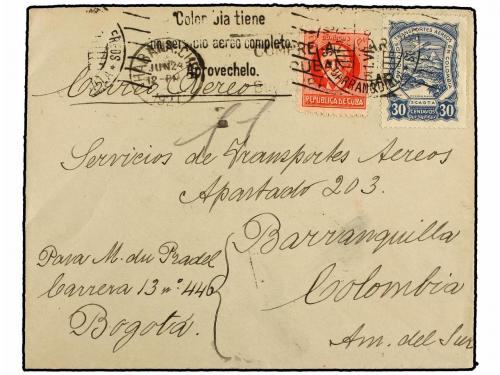 Colombia tiene
un servicio aereo completo.
Aprovechelo.
JUN 24
Correo Aereo
REPUBLICA DE CUBA
TRANSPORTES AEREOS
SCADTA
30 CENTAVOS 30
Servicios de Transportes Aereos
Apartado 203.
Barranquilla
Colombia
Am. del Sur
Para M. du Pradel
Carrera 13 nº 446
Bogotá.